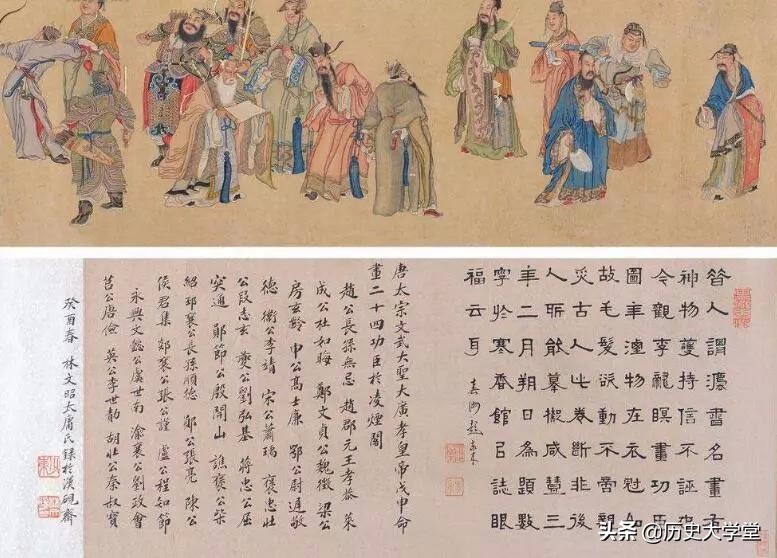 昔人謂灋書名畫有
神物護持信不誣也
今觀李龍瞑畫功臣
圖年湮物在衣冠如
故毛髮欲動不啻親
炙古人此卷斷非後
人所能摹擬咸豐三
年二月朔日為題數
字於寒香館㠯誌眼
福云耳
唐太宗文武大聖大廣孝皇帝戊申命
畫二十四功臣於凌煙閣
趙公長孫無忌 趙郡元王孝恭 萊
成公杜如晦 鄭文貞公魏徵 梁公
房玄齡 申公高士廉 鄂公尉遲敬
德 衛公李靖 宋公蕭瑀 褒忠壯
公段志玄 夔公劉弘基 蔣忠公屈
突通 鄖節公殷開山 譙襄公柴
紹 邳襄公長孫順德 鄖公張亮 陳公
侯君集 郯襄公張公謹 盧公程知節
永興文懿公虞世南 渝襄公劉政會
莒公唐儉 英公李世勣 胡壯公秦叔寶
癸酉春 林文昭太庸氏錄於漢硯齋
头条 @历史大学堂